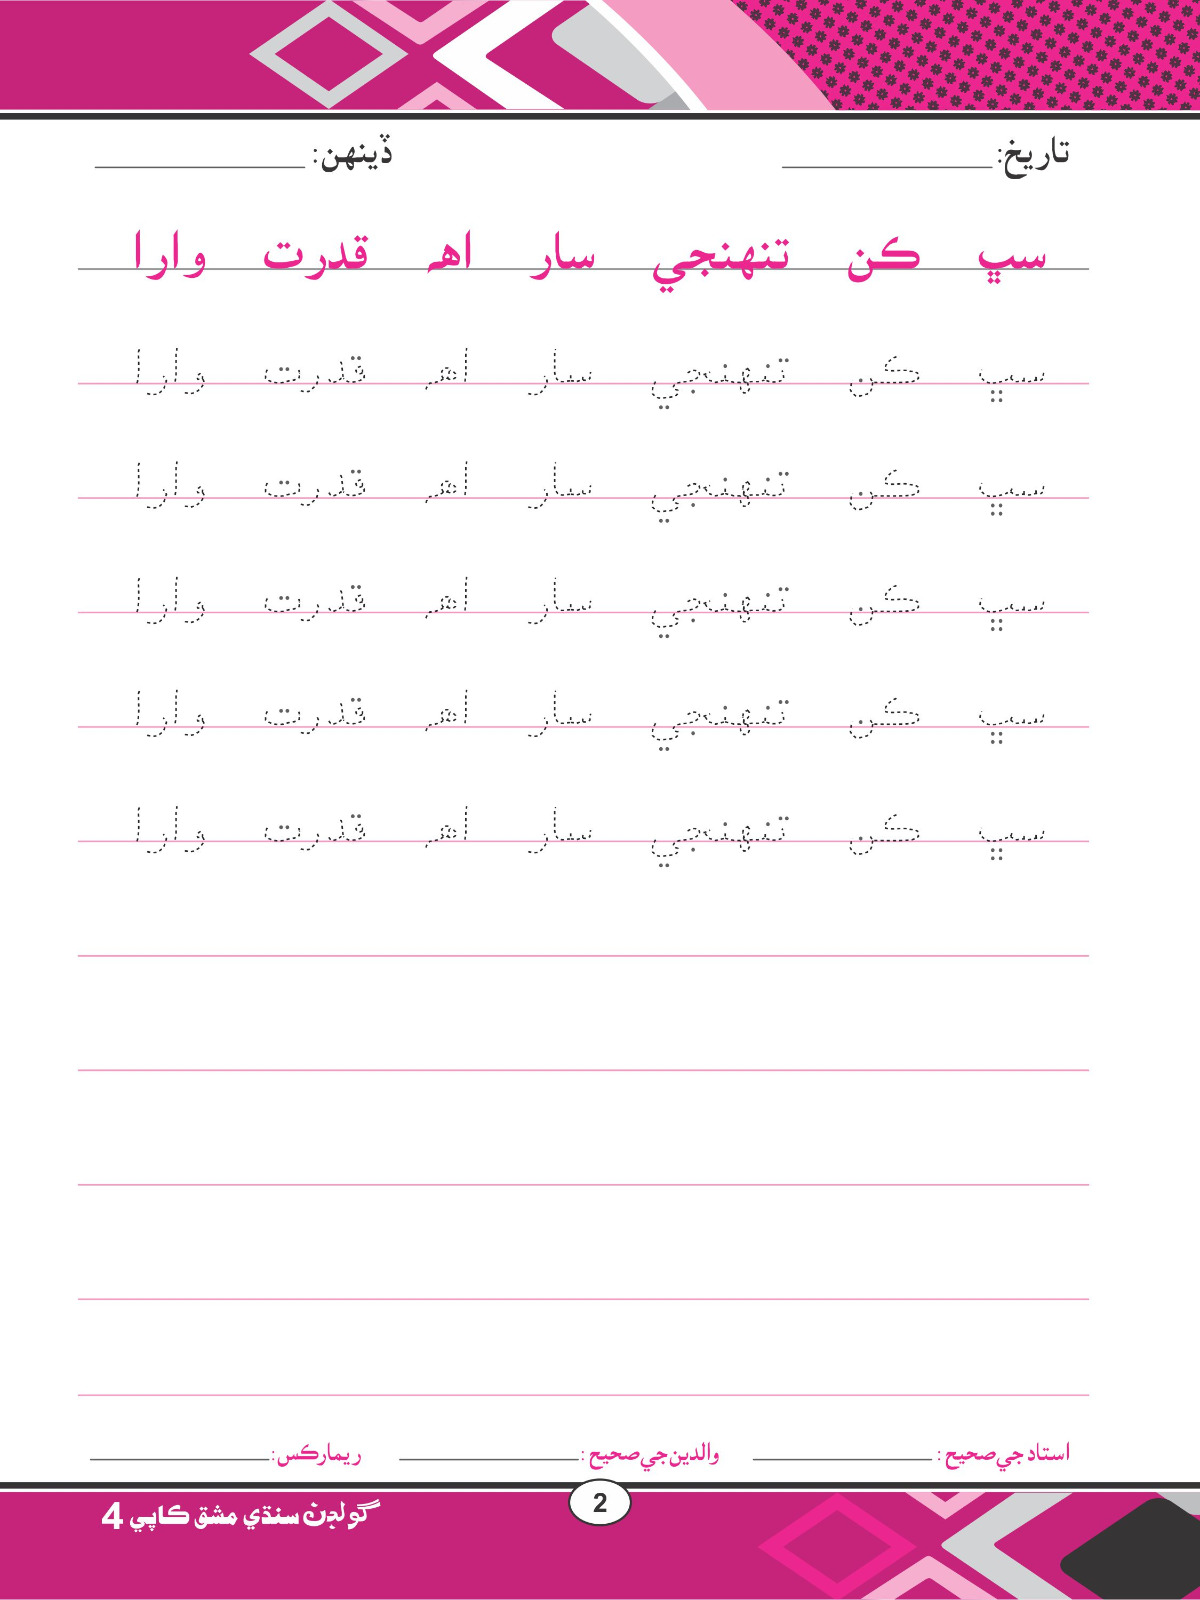 تاريخ: ڏينهن:
سڀ ڪن تنهنجي سار اهہ قدرت وارا
سڀ ڪن تنهنجي سار اهہ قدرت وارا
سڀ ڪن تنهنجي سار اهہ قدرت وارا
سڀ ڪن تنهنجي سار اهہ قدرت وارا
سڀ ڪن تنهنجي سار اهہ قدرت وارا
سڀ ڪن تنهنجي سار اهہ قدرت وارا
استاد جي صحيح: والدين جي صحيح: ريمارڪس:
2
گولڊن سنڌي مشق ڪاپي 4